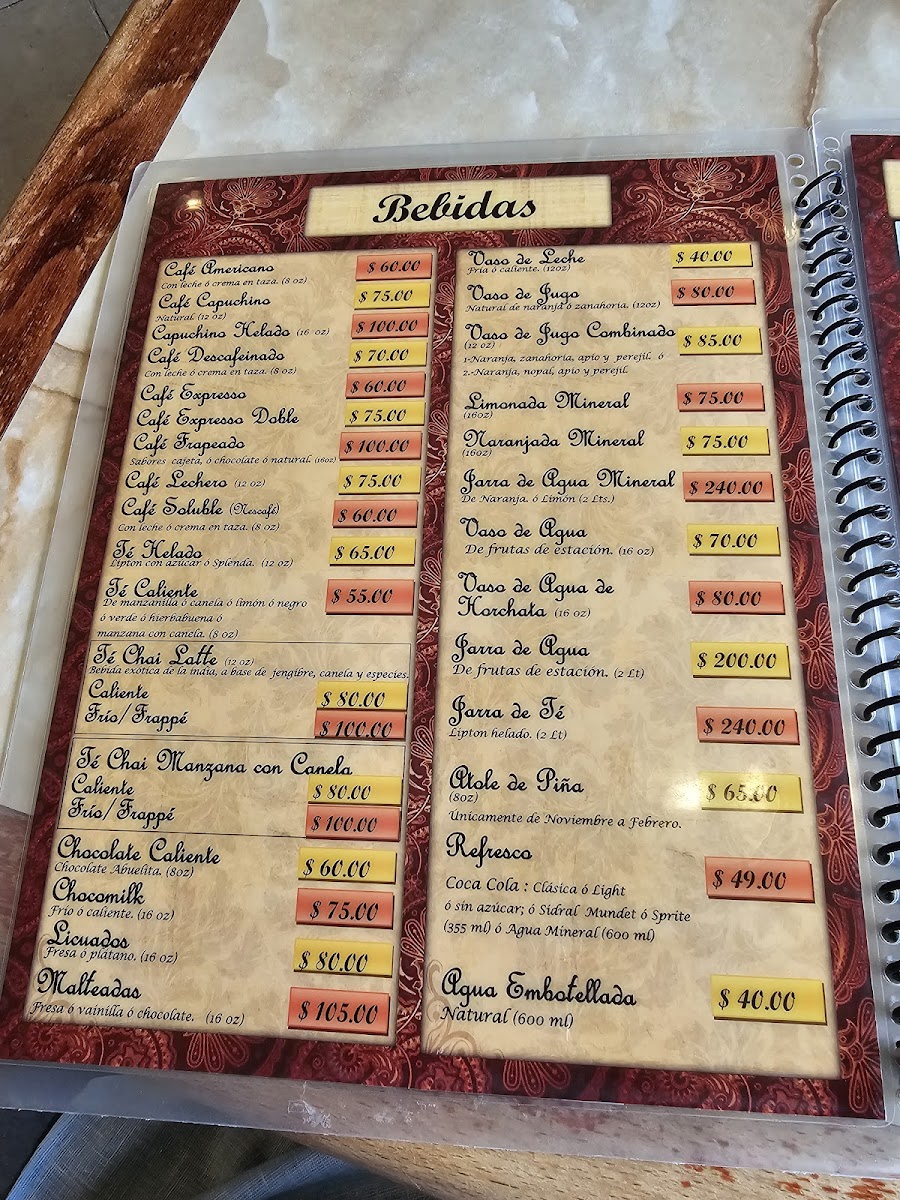 Bebidas
Café Americano $ 60.00
Con leche ó crema en taza. (8 oz)
Café Capuchino $ 75.00
Natural. (12 oz)
Capuchino Helado (16 oz) $ 100.00
Café Descafeinado $ 70.00
Con leche ó crema en taza. (8 oz)
Café Expresso $ 60.00
Café Expresso Doble $ 75.00
Café Frapeado $ 100.00
Sabores cajeta, ó chocolate ó natural. (16oz)
Café Lechero (12 oz) $ 75.00
Café Soluble (Nescafé) $ 60.00
Con leche ó crema en taza. (8 oz)
Té Helado $ 65.00
Lipton con azúcar o Splenda. (12 oz)
Té Caliente $ 55.00
De manzanilla ó canela ó limón ó negro
ó verde ó hierbabuena ó
manzana con canela. (8 oz)
Té Chai Latte (12 oz)
Bebida exótica de la india, a base de jengibre, canela y especies.
Caliente $ 80.00
Frío/Frappé $ 100.00
Té Chai Manzana con Canela
Caliente $ 80.00
Frío/Frappé $ 100.00
Chocolate Caliente $ 60.00
Chocolate Abuelita. (8oz)
Chocomilk $ 75.00
Frío o caliente. (16 oz)
Licuados $ 80.00
Fresa o plátano. (16 oz)
Malteadas $ 105.00
Fresa ó vainilla ó chocolate. (16 oz)
Vaso de Leche $ 40.00
Fría ó caliente. (12oz)
Vaso de Jugo $ 80.00
Natural de naranja ó zanahoria. (12oz)
Vaso de Jugo Combinado $ 85.00
(12 oz)
1-Naranja, zanahoria, apio y perejil. ó
2.-Naranja, nopal, apio y perejil.
Limonada Mineral $ 75.00
(16oz)
Naranjada Mineral $ 75.00
(16oz)
Jarra de Agua Mineral $ 240.00
De Naranja. ó Limón (2 Lts.)
Vaso de Agua $ 70.00
De frutas de estación. (16 oz)
Vaso de Agua de
Horchata (16 oz) $ 80.00
Jarra de Agua $ 200.00
De frutas de estación. (2 Lt)
Jarra de Té $ 240.00
Lipton helado. (2 Lt)
Atole de Piña $ 65.00
(8oz)
Únicamente de Noviembre a Febrero.
Refresco $ 49.00
Coca Cola : Clásica ó Light
ó sin azúcar; ó Sidral Mundet ó Sprite
(355 ml) ó Agua Mineral (600 ml)
Agua Embotellada $ 40.00
Natural (600 ml)